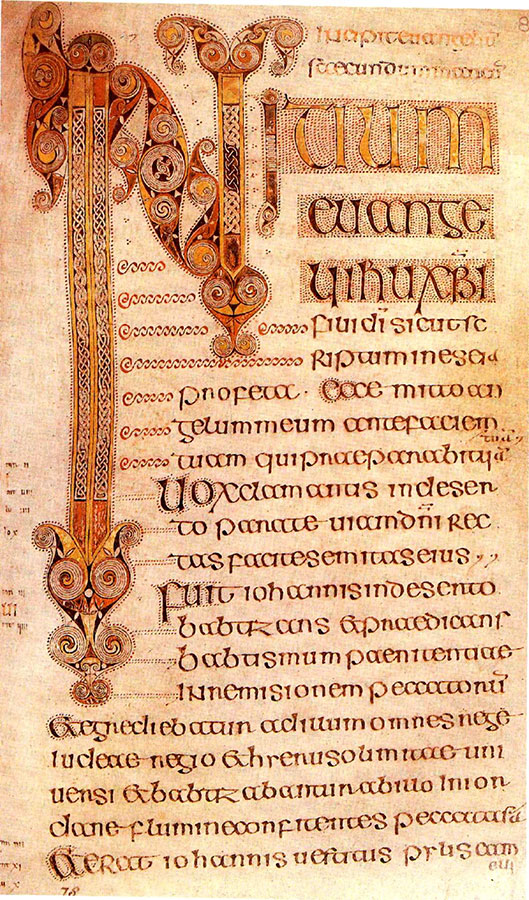 secundum
INITIUM
euange
lii ihu xpi
filii di sicut sc
riptum in eseia
profeta · Ecce mitto an
gelum meum ante faciem
tuā
tuam qui praeparabit uiā
Uox clamantis in deser
to parate uiam dn̄i rec
tas facite semitas eius ,,
Fuit iohannis in deserto
babtizans & praedicans
babtismum paenitentiae
in remisionem peccatorū
& egrediebatur ad illum omnes rege
iudeae regio & hierusolimitae uni
uersi & babtizabantur ab illo in ior
dane flumine confitentes peccata sua
& erat iohannis uestitus pylis cam
elli